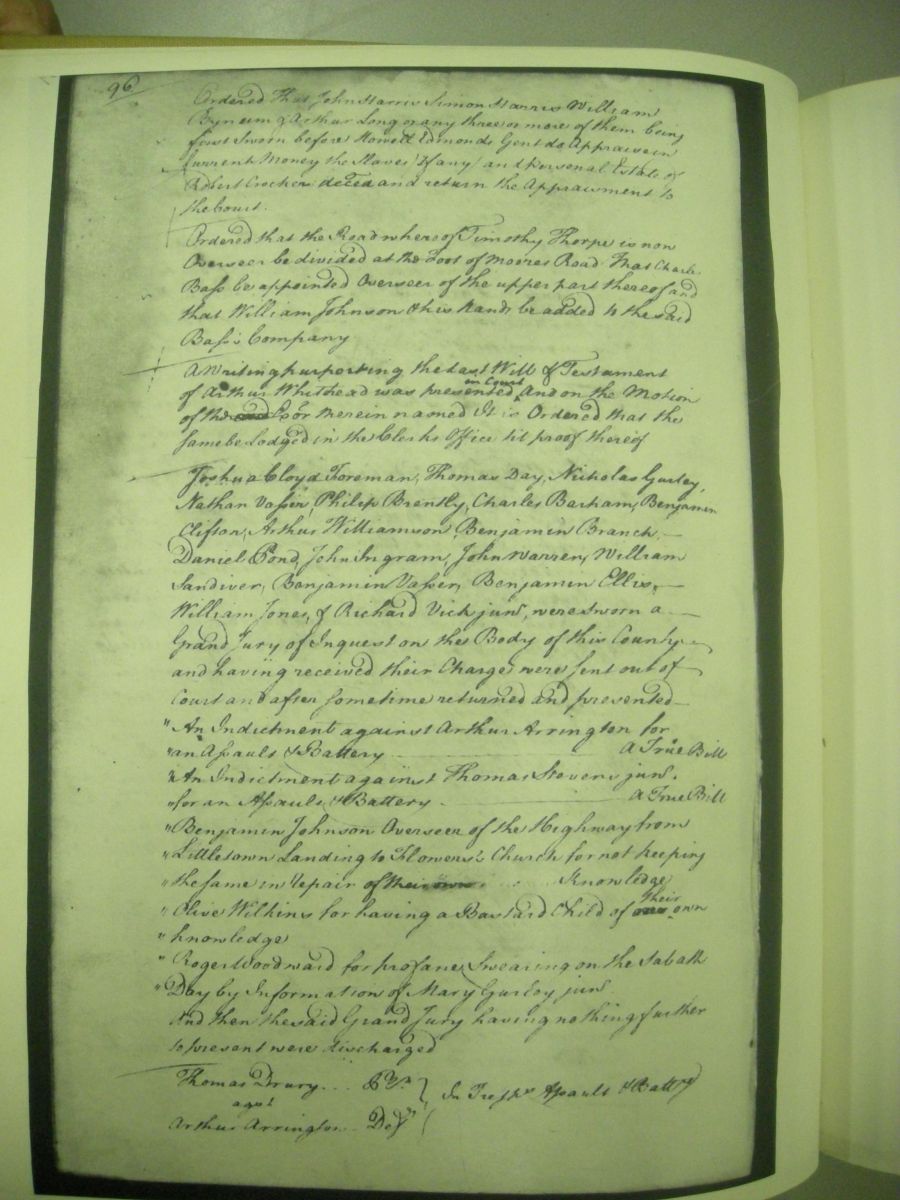 96
Ordered That John Harris Simon Harris William
Bynum & Arthur Long or any three or more of them being
first Sworn before Howell Edmonds Gent do Appraise in
Current Money the Slaves if any and Personal Estate of
Robert Crocker deced and return the Appraisment to
the Court.
Ordered that the Road whereof Timothy Thorpe is now
Overseer be divided at the Foot of Moores Road That Charles
Bass be appointed Overseer of the upper part thereof and
that William Johnson & his Hands be added to the said
Bass's Company
A Writing purporting the Last Will & Testament
of Arthur Whithead was presented in Court And on the Motion
of the Exor therein named It is Ordered that the
same be Lodged in the Clerks Office til proof thereof
Joshua Cloyd Foreman, Thomas Day, Nicholas Gurley,
Nathan Vasser, Philip Brantly, Charles Barham, Benjamin
Clifton, Arthur Williamson, Benjamin Branch,
Daniel Pond, John Ingram, John Warren, William
Sandiver, Benjamin Vasser, Benjamin Ellis,
William Jones, & Richard Vick junr, were sworn a
Grand Jury of Inquest on the Body of this County
and having received their Charge were sent out of
Court and after sometime returned and presented
" An Indictment against Arthur Arrington for
" an Assault & Battery A True Bill
" An Indictment against Thomas Stevens junr.
" for an Assault & Battery A True Bill
" Benjamin Johnson Overseer of the Highway from
" Littletown Landing to Flowers's Church for not keeping
" the same in repair of their own Knowledge
" Olive Wilkins for having a Bastard Child of their own
" knowledge
" Roger Woodward for profane Swearing on the Sabath
" Day by Information of Mary Gurley junr.
And then the said Grand Jury having nothing further
to present were discharged
Thomas Drury Plt
agst In Tresps Assault & Battry
Arthur Arrington Deft